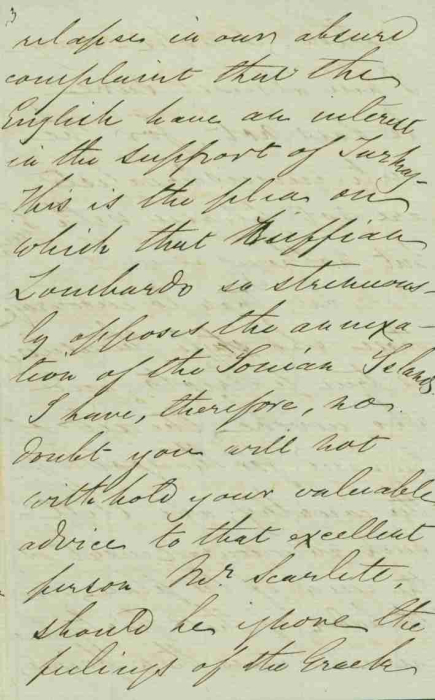 3
relapse in our absurd
complaint that the
English have an interest
in the support of Turkey
This is the plea on
which that Ruffian
Lombardo so strenuous-
ly opposes the annexa-
tion of the Ionian Islands
I have, therefore, no
doubt you will not
withhold your valuable
advice to that excellent
person Mr. Scarlett,
should he ignore the
feelings of the Greek